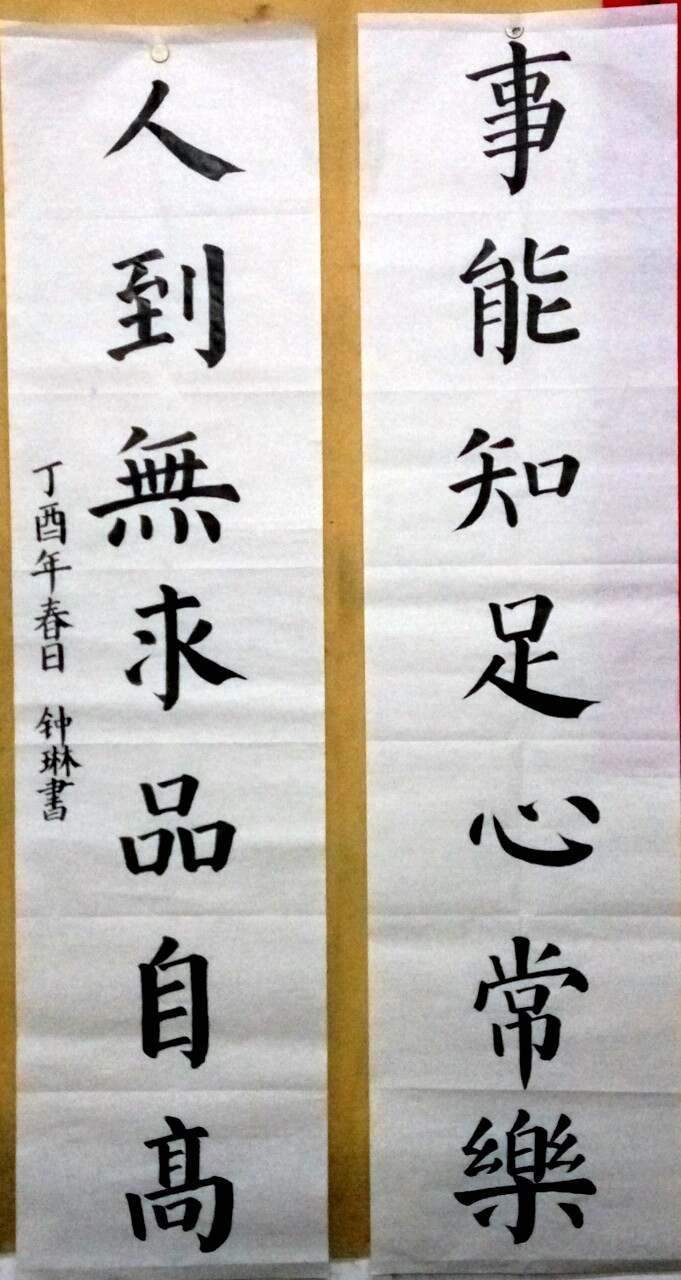 事能知足心常樂
人到無求品自高
丁酉年春日 钟琳書